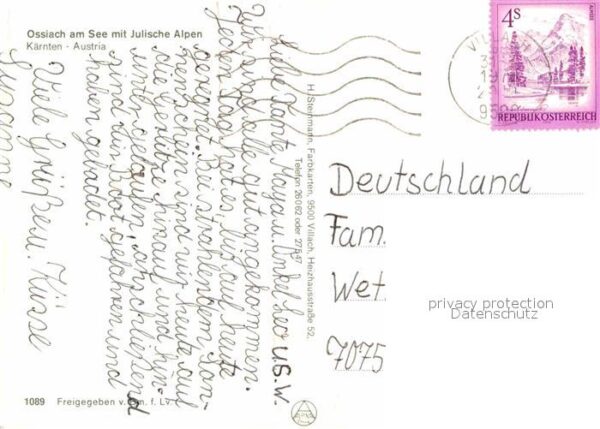 Ossiach am See mit Julische Alpen
Kärnten - Austria
Liebe Tante Maya u. Onkel Leo u.s.w.
Wir sind alle gut angekommen.
Jeden Tag hat es, bis auf heute
geregnet. Bei strahlendem Son-
nenschein sind wir heute auf
die Gerlitze hinauf und hin-
unter gelaufen, anschließend
sind wir Boot gefahren und
haben gebadet.
Viele Grüße u. Küsse
Susanne
H. Steinmann, Farbkarten, 9500 Villach, Heizhausstraße 52,
Telefon 26062 oder 27547
4s
ALMSEE
REPUBLIK ÖSTERREICH
VILLACH
Deutschland
Fam.
Wet.
7075
privacy protection
Datenschutz
1089 Freigegeben v. f. Lv.